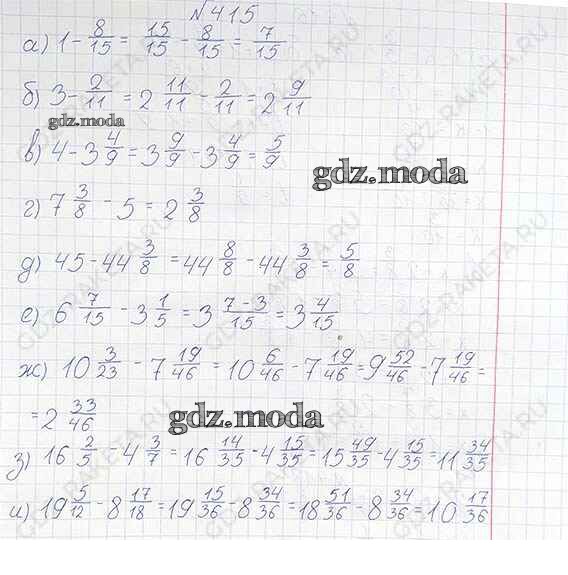 №415
а) 1 - 8/15 = 15/15 - 8/15 = 7/15
б) 3 - 2/11 = 2 11/11 - 2/11 = 2 9/11
gdz.moda
в) 4 - 3 4/9 = 3 9/9 - 3 4/9 = 5/9
gdz.moda
г) 7 3/8 - 5 = 2 3/8
д) 45 - 44 3/8 = 44 8/8 - 44 3/8 = 5/8
е) 6 7/15 - 3 1/5 = 3 (7-3)/15 = 3 4/15
ж) 10 3/23 - 7 19/46 = 10 6/46 - 7 19/46 = 9 52/46 - 7 19/46 =
= 2 33/46
gdz.moda
з) 16 2/5 - 4 3/7 = 16 14/35 - 4 15/35 = 15 49/35 - 4 15/35 = 11 34/35
и) 19 5/12 - 8 17/18 = 19 15/36 - 8 34/36 = 18 51/36 - 8 34/36 = 10 17/36
GDZ-RAKETA.RU